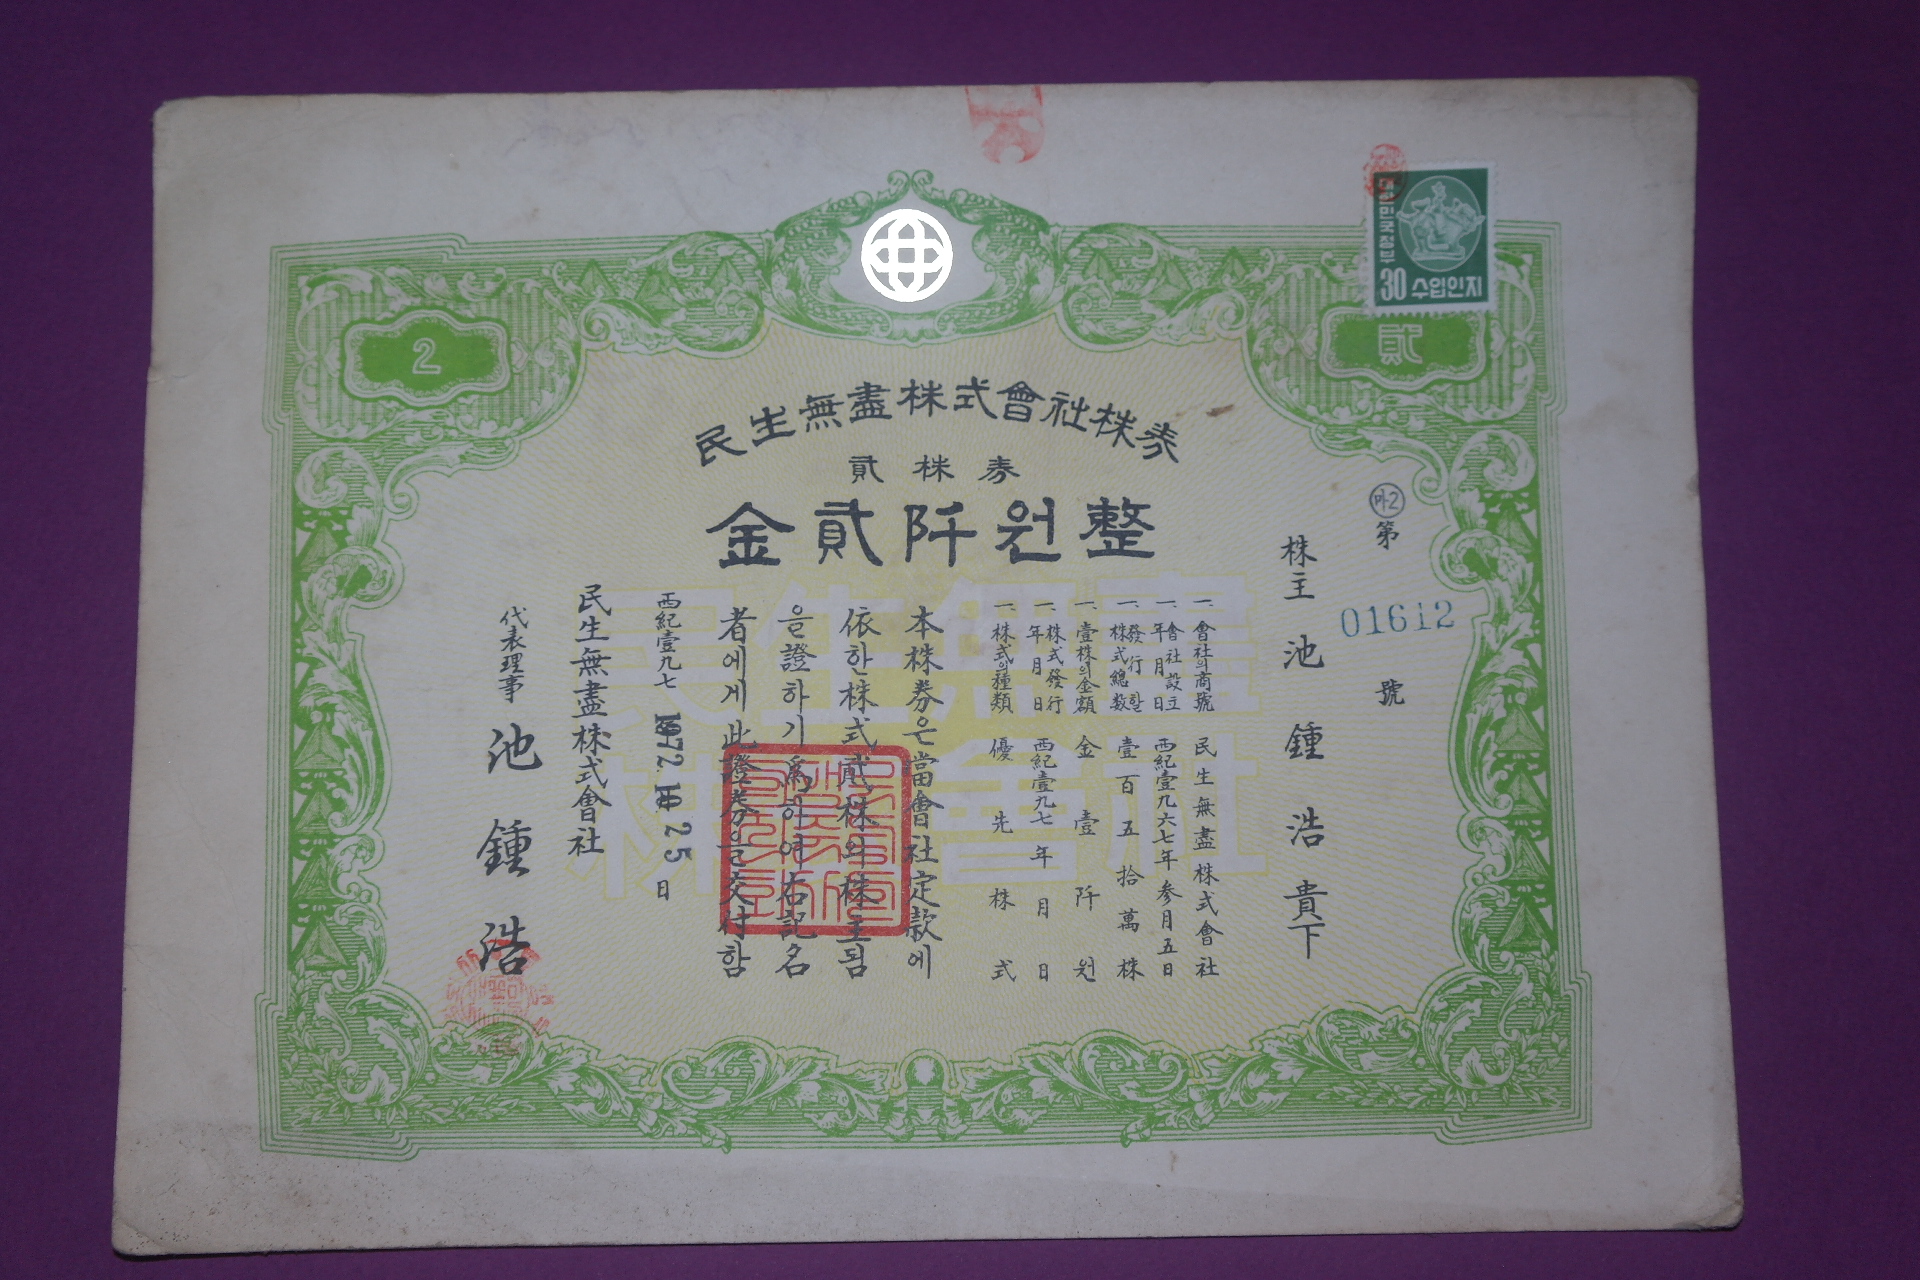 大한민국정부
30 수입인지
2
貳
民生無盡株式會社株券
貳株券
金貳阡원整
마2
第 01612 號
株主 池鍾浩 貴下
一. 會社의商號 民生無盡株式會社
一. 會社設立年月日 西紀壹九六七年参月五日
一. 發行할株式總数 壹百五拾萬株
一. 壹株의金額 金壹阡원
一. 株式發行年月日 西紀壹九七 年 月 日
一. 株式의種類 優先株式
本株券은當會社定款에
依한株式貳株의株主됨
을證하기爲하여右記名
者에게此證券을交付함
西紀壹九七 1972. 10. 25 日
民生無盡株式會社
代表理事 池鍾浩
民生無盡
株式會社